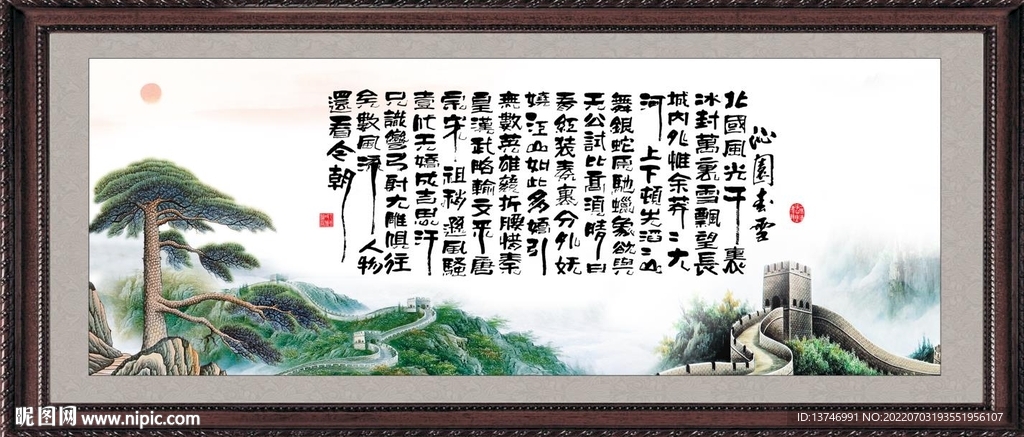 沁園春雪
北國風光千裏
冰封萬裏雪飄望長
城內外惟余莽〻大
河上下頓失滔〻山
舞銀蛇原馳蠟象欲與
天公試比高須晴日
看紅裝素裹分外妖
嬈江山如此多嬌引
無數英雄競折腰惜秦
皇漢武略輸文采唐
宗宋祖稍遜風騷
壹代天嬌成吉思汗
只識彎弓射大雕俱往
矣數風流人物
還看今朝
昵图网 www.nipic.com
ID:13746991 NO:20220703193551956107